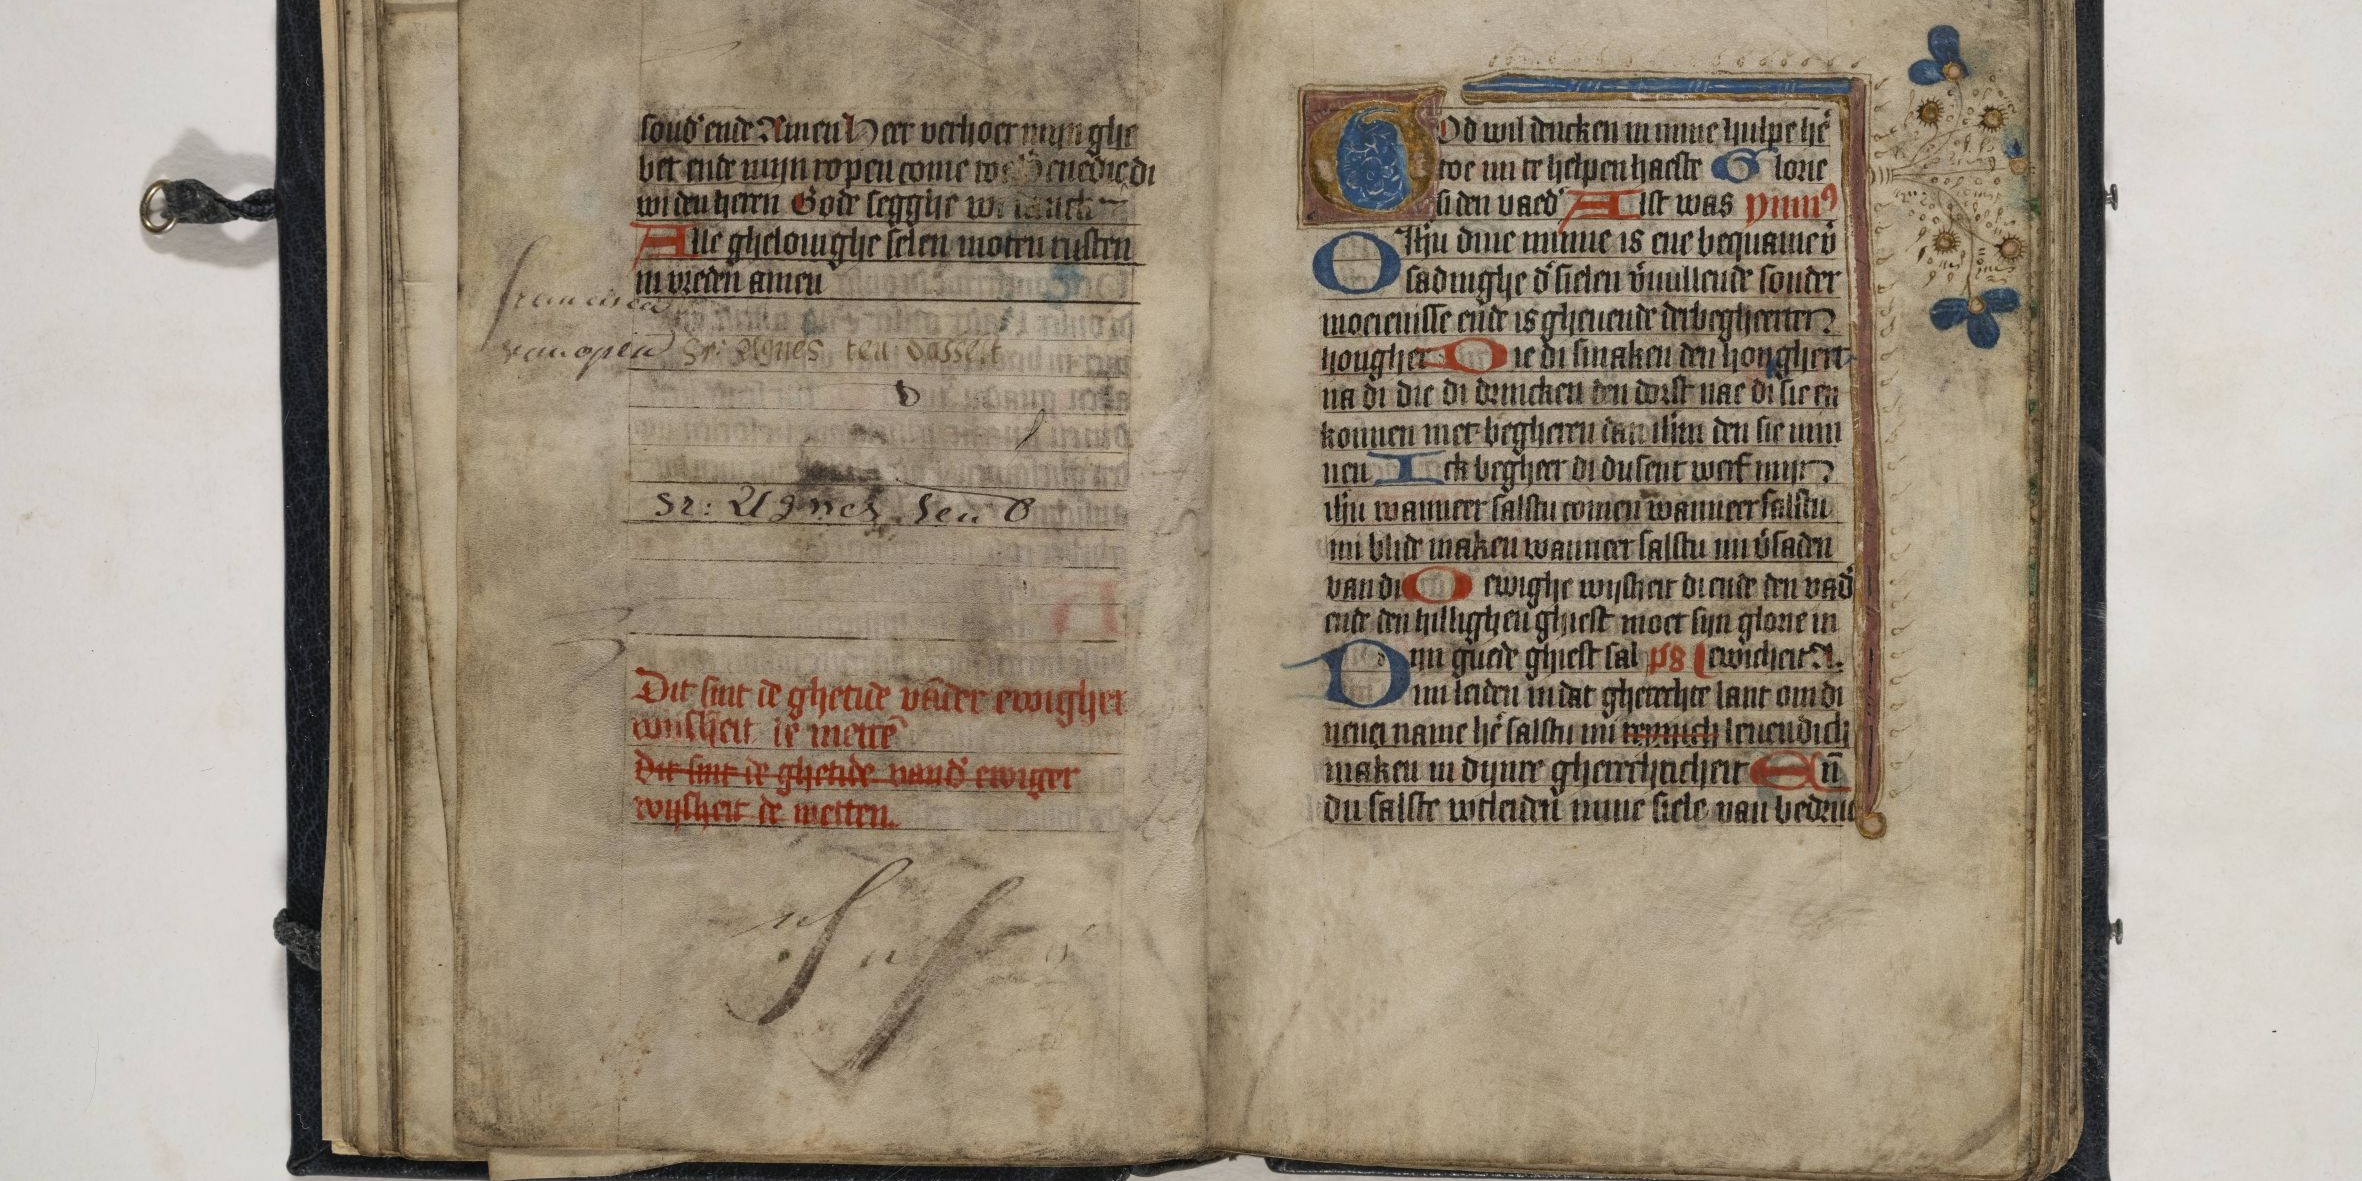 sond' ende Amen Heer verhoer mijn ghe
bet ende mijn ropen come Benedie di
wi den heren Gode segghe wi
Alle ghelouighe selen moten rusten
in vreden amen
francisca
van open Sr: Agnes ten dassest
D
Sr: Agnes ten D
Dit sint de ghetide vāder ewigher
wijsheit ie mettē
Dit sint de ghetide vand' ewiger
wijsheit de metten.
God wil dencken in mine hulpe hē
toe mi te helpen haeste Glorie
si den vaed' Alst was ymn9
O Ihū dine minne is ene bequame v̄
sadinghe d' sielen v̄vullende sonder
moeienisse ende is gheuende der begheerten
hongher Die di smaken den honghert
na di die di drincken den dorst nae di sie en
konnen niet begheren dan ihm̄ den sie min
nen Ick begheer di dusent werf mijn
ihū wanneer salstu comen wanneer salstu
mi blide maken wanneer salstu mi v̄saden
van di O ewighe wijsheit di ende den vad'
ende den hillighen ghiest moet sijn glorie in
Dijn guede ghiest sal ps ewicheit A.
mi leiden in dat gherechte lant om di
nen name hē salstu mi leuendich
maken in dijnre gherechticheit Eñ
du salste wtleiden mine siele van bedru